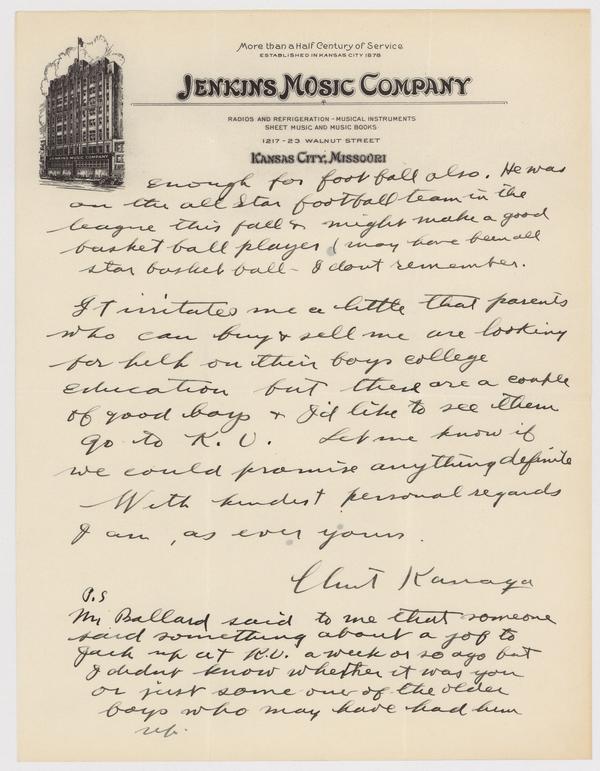 More than a Half Century of Service
ESTABLISHED IN KANSAS CITY 1878
JENKINS MUSIC COMPANY
RADIOS AND REFRIGERATION - MUSICAL INSTRUMENTS
SHEET MUSIC AND MUSIC BOOKS
1217-23 WALNUT STREET
KANSAS CITY, MISSOURI
JENKINS MUSIC COMPANY
enough for football also. He was
on the all Star football team in the
league this fall & might make a good
basket ball player (may have been all
star basket ball - I dont remember.
It irritates me a little that parents
who can buy & sell me are looking
for help on their boys college
education but there are a couple
of good boys & I'd like to see them
go to K. U. Let me know if
we could promise anything definite
With kindest personal regards
I am, as ever yours.
Clint Kanaga
P.S
Mr. Ballard said to me that someone
said something about a job to
Jack up at K.U. a week or so ago but
I didnt know whether it was you
or just some one of the older
boys who may have had him
up.